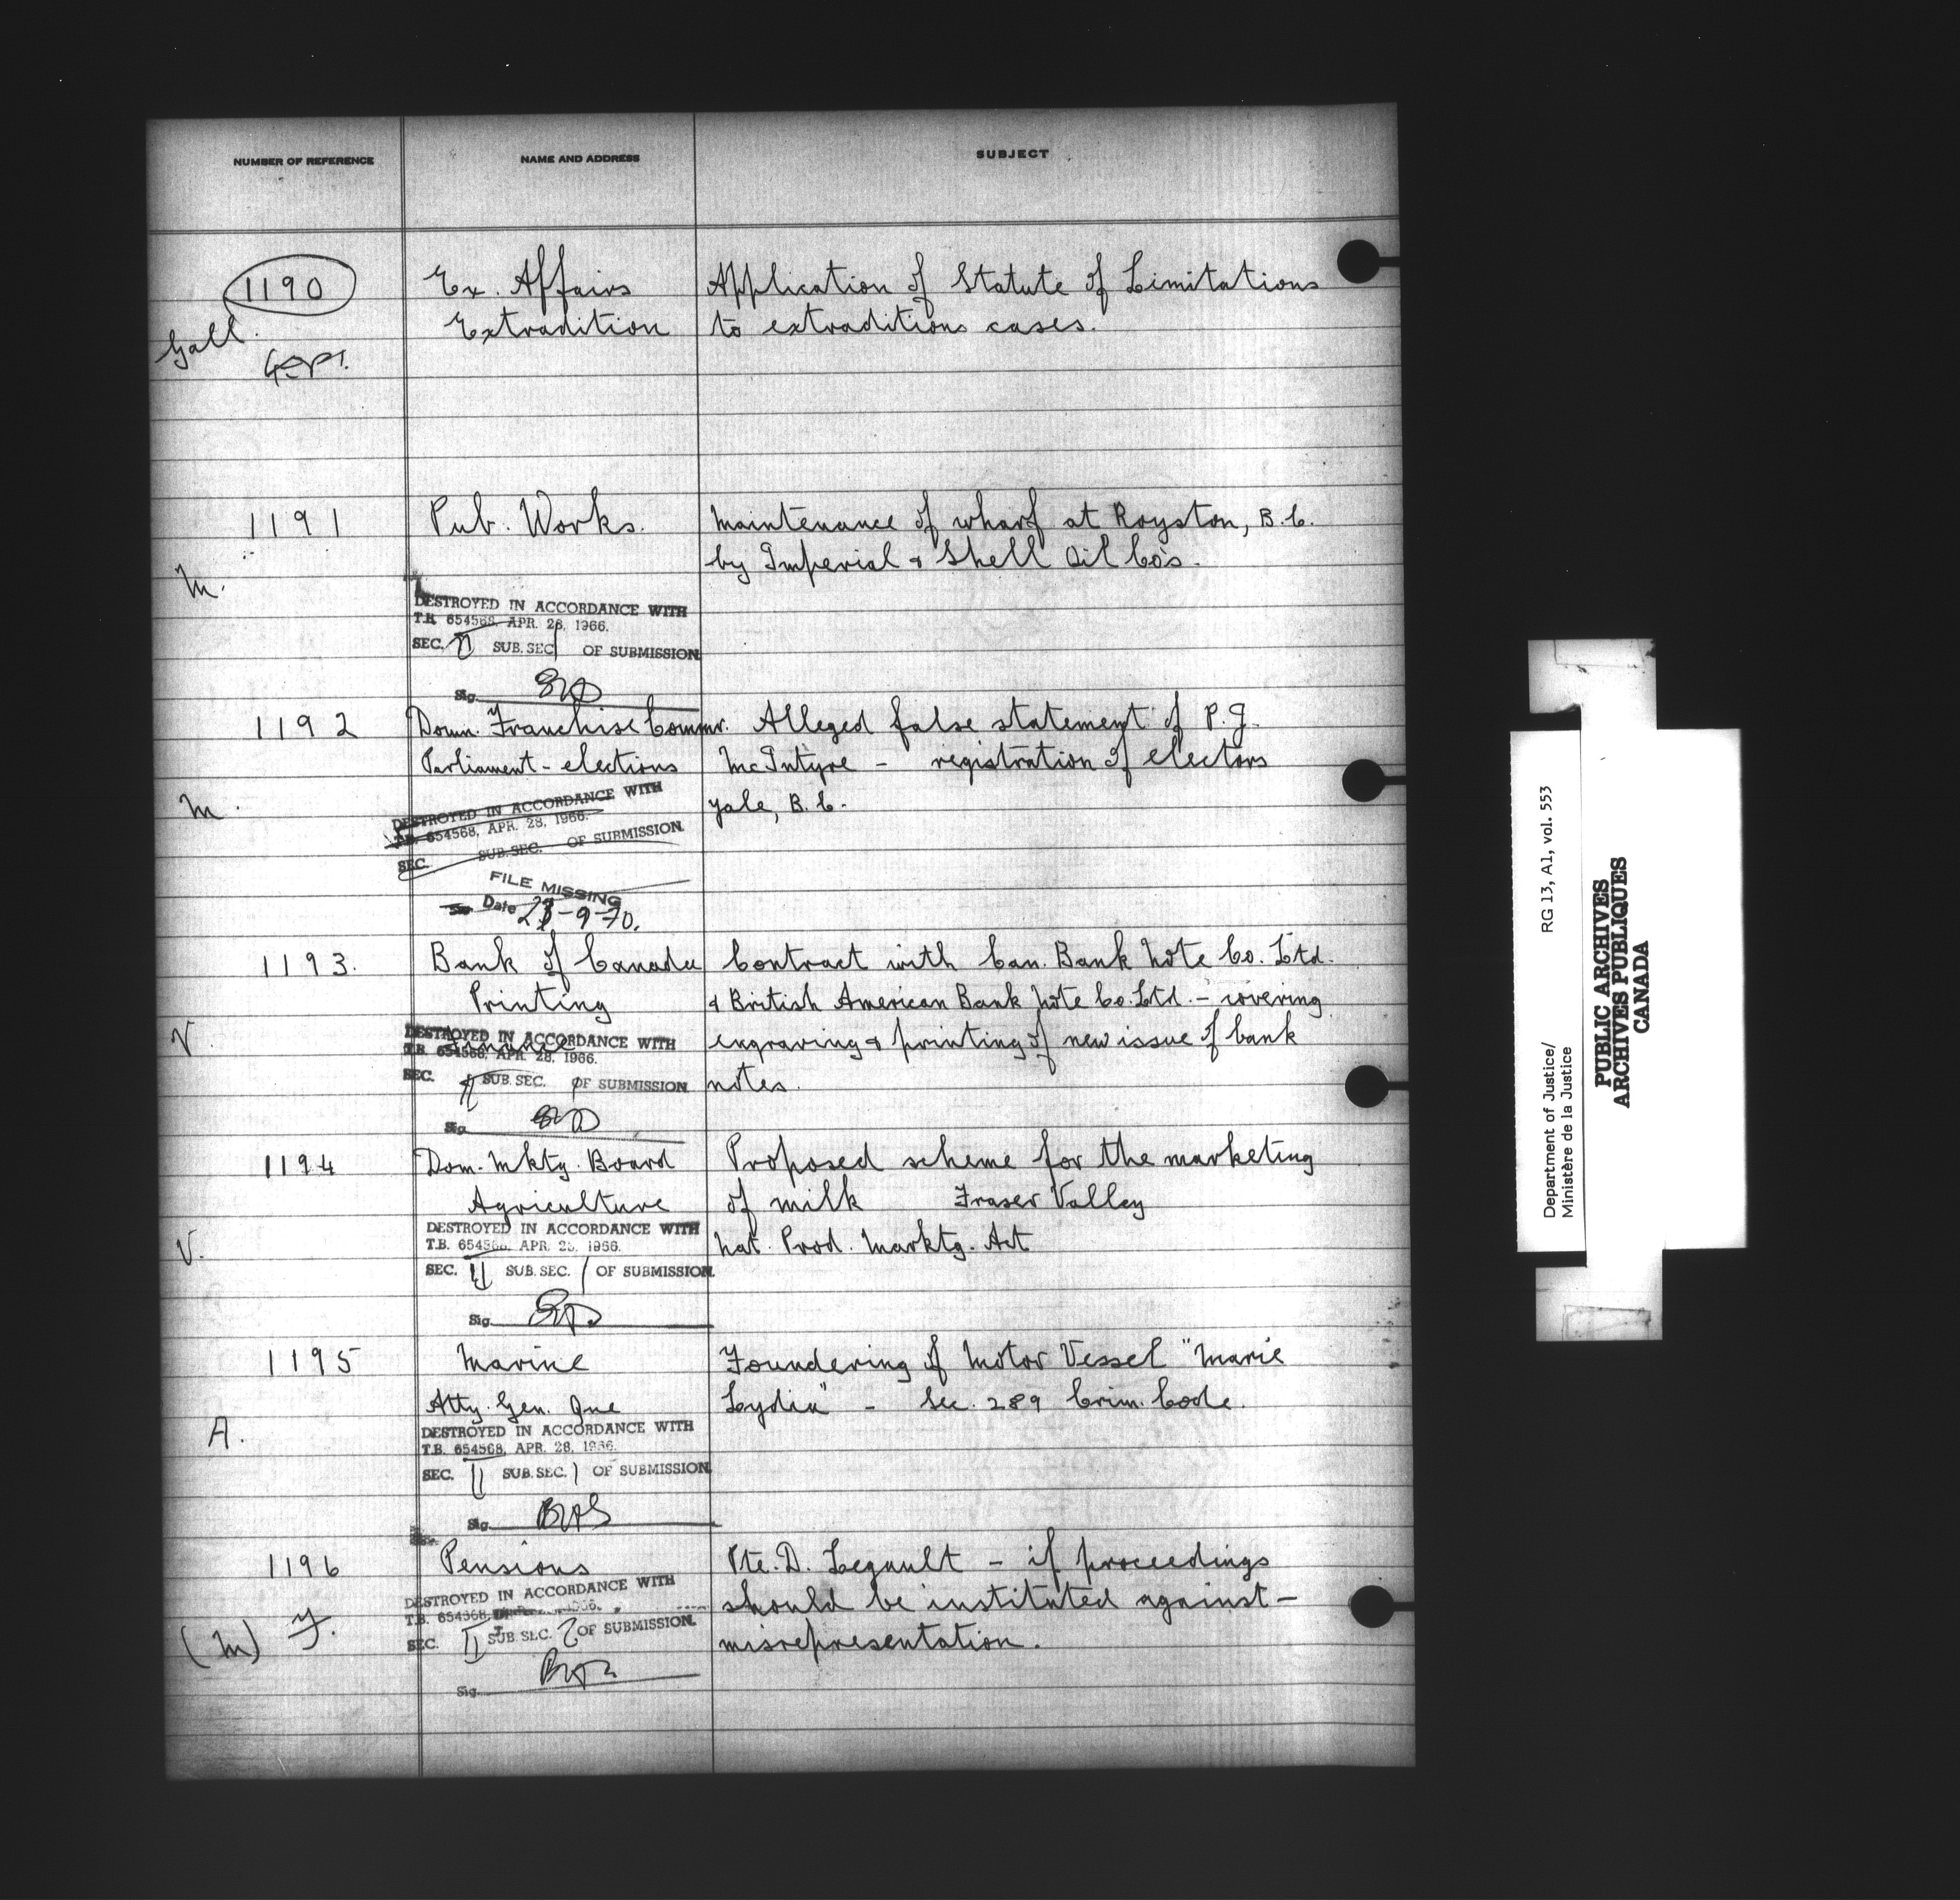 NUMBER OF REFERENCE NAME AND ADDRESS SUBJECT
1190 Ex. Affairs Application of Statute of Limitations
Extradition to extraditions cases.
Gall.
1191 Pub. Works. Maintenance of wharf at Royston, B.C.
by Imperial & Shell Oil Co's.
M.
DESTROYED IN ACCORDANCE WITH
T.B. 654568, APR. 28, 1966.
SEC. SUB. SEC. OF SUBMISSION
Sig.
1192 Dom. Franchise Commr. Alleged false statement of P.J.
Parliament - elections McIntyre - registration of electors
M. Yale, B.C.
DESTROYED IN ACCORDANCE WITH
T.B. 654568, APR. 28, 1966.
SEC. SUB. SEC. OF SUBMISSION
FILE MISSING
Date -9-70.
1193. Bank of Canada Contract with Can. Bank Note Co. Ltd.
Printing & British American Bank Note Co. Ltd. - covering
V. Finance engraving & printing of new issue of bank
DESTROYED IN ACCORDANCE WITH
T.B. 654568, APR. 28, 1966.
SEC. SUB. SEC. OF SUBMISSION notes.
Sig.
1194 Dom. Mktg. Board Proposed scheme for the marketing
Agriculture of milk Fraser Valley
DESTROYED IN ACCORDANCE WITH Nat. Prod. Marktg. Act
V. T.B. 654568, APR. 28, 1966.
SEC. 11 SUB. SEC. 1 OF SUBMISSION
Sig.
1195 Marine Foundering of Motor Vessel "Marie
Atty. Gen. Que Lydia" - Sec. 289 Crim. Code.
A. DESTROYED IN ACCORDANCE WITH
T.B. 654568, APR. 28, 1966.
SEC. 11 SUB. SEC. 1 OF SUBMISSION
Sig.
1196 Pensions Pte. D. Legault - if proceedings
DESTROYED IN ACCORDANCE WITH should be instituted against -
T.B. 654568,
(M) F. SEC. 11 SUB. SEC. 2 OF SUBMISSION misrepresentation.
Sig.
Department of Justice/ RG 13, A1, vol. 553
Ministère de la Justice
PUBLIC ARCHIVES
ARCHIVES PUBLIQUES
CANADA